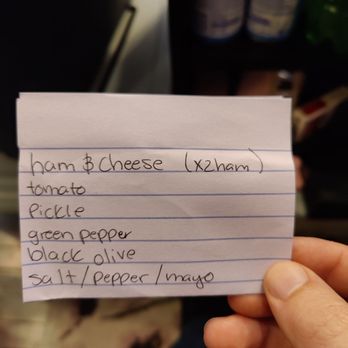 ham & cheese (x2ham)
tomato
Pickle
green pepper
black olive
salt/pepper/mayo